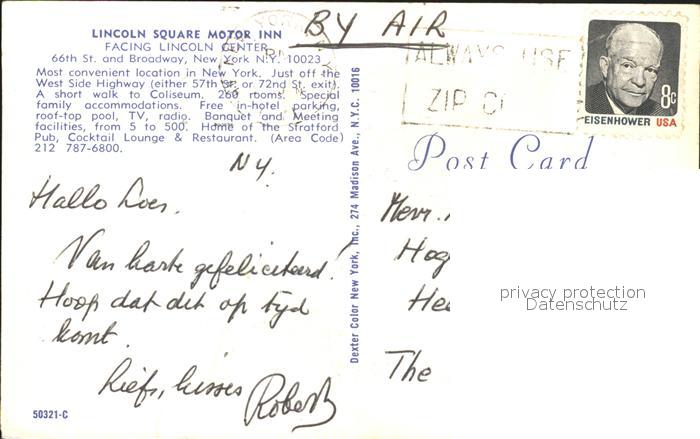 LINCOLN SQUARE MOTOR INN
FACING LINCOLN CENTER
66th St. and Broadway, New York N.Y. 10023
Most convenient location in New York. Just off the
West Side Highway (either 57th St. or 72nd St. exit).
A short walk to Coliseum. 260 rooms. Special
family accommodations. Free in-hotel parking,
roof-top pool, TV, radio. Banquet and Meeting
facilities, from 5 to 500. Home of the Stratford
Pub, Cocktail Lounge & Restaurant. (Area Code)
212 787-6800.
N.Y.
Hallo Loes.
Van harte gefeliciteerd!
Hoop dat dit op tyd
komt.
Liefs, kisses
Robert
50321-C
Dexter Color New York, Inc., 274 Madison Ave., N.Y.C. 10016
BY AIR
ALWAYS USE
ZIP CO
8c
EISENHOWER USA
Post Card
Mevr.
Hog
Hee
The
privacy protection
Datenschutz